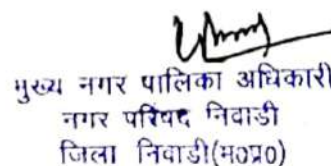 मुख्य नगर पालिका अधिकारी
नगर परिषद निवाडी
जिला निवाडी(म0प्र0)